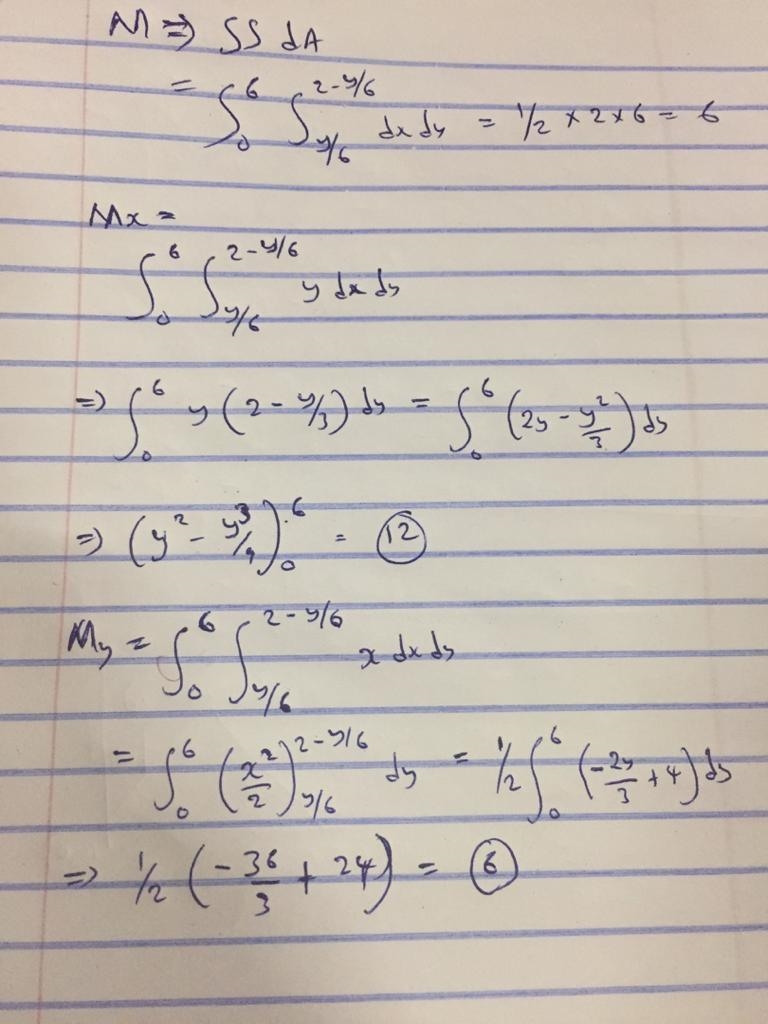 M ⇒ ∫∫ dA
= ∫₀⁶ ∫_{y/6}^{2-y/6} dx dy = 1/2 × 2 × 6 = 6
Mx =
∫₀⁶ ∫_{y/6}^{2-y/6} y dx dy
⇒ ∫₀⁶ y (2 - y/3) dy = ∫₀⁶ (2y - y²/3) dy
⇒ (y² - y³/9)₀⁶ = 12
My = ∫₀⁶ ∫_{y/6}^{2-y/6} x dx dy
= ∫₀⁶ (x²/2)_{y/6}^{2-y/6} dy = 1/2 ∫₀⁶ (-2y/3 + 4) dy
⇒ 1/2 (-36/3 + 24) = 6